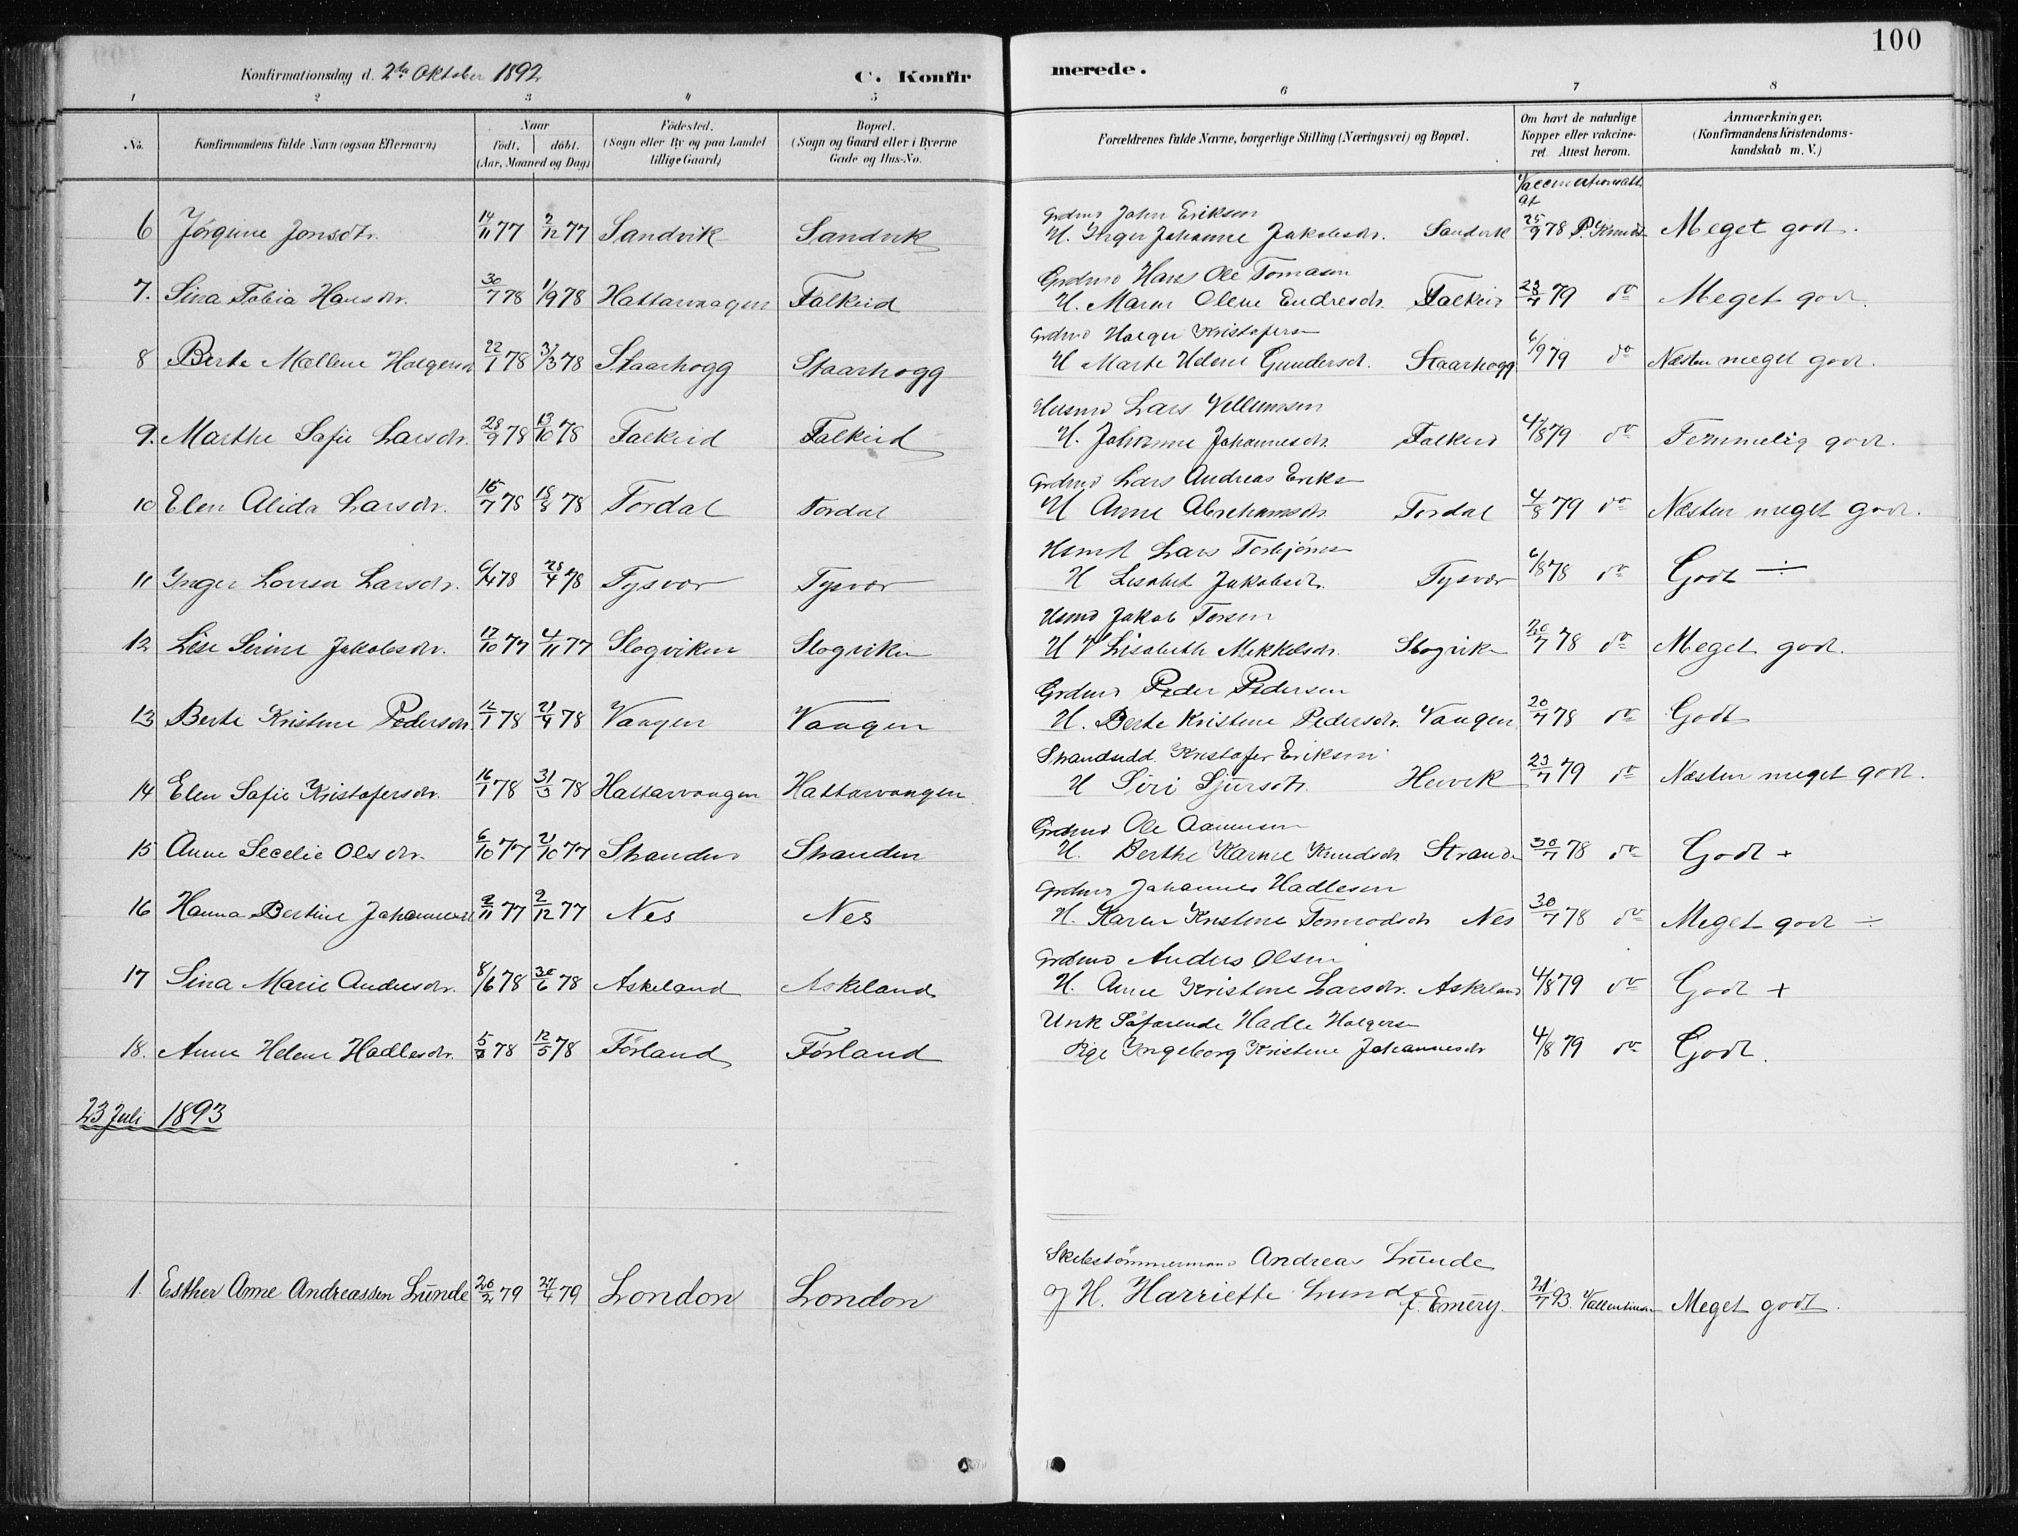 100
Konfirmationsdag d. 2den Oktober 1892
C. Konfirmerede.
1 2 3 4 5 6 7 8
No. Konfirmandens fulde Navn (ogsaa Efternavn) Naar født. døbt. (Aar, Maaned og Dag) Fødested. (Sogn eller By og paa Landet tillige Gaard) Bopæl. (Sogn og Gaard eller i Byerne Gade og Hus-No. Forældrenes fulde Navne, borgerlige Stilling (Næringsvei) og Bopæl. Om havt de naturlige Kopper eller vakcineret. Attest herom. Anmærkninger. (Konfirmandens Kristendomskundskab m. V.)
Grdmd John Eriksen
6 Jørgine Jonsdtr. 14/11 77 2/12 77 Sandvik Sandvik H. Inger Johanne Jakobsdr. Sandvik 25/9 78 P. Meget godt.
Grdmd Hans Ole Tomasen
7. Sina Tobia Hansdr. 30/7 78 1/9 78 Hattarvaagen Falkeid H. Maren Olene Endresdr. Falkeid 23/7 79 do Meget godt.
Grdmd Holger Kristofersen
8 Berte Mallene Holgersd 22/1 78 31/3 78 Staarhogg Staarhogg H Marte Helene Gundersd. Staarhogg 6/9 79 do Næsten meget godt.
Husmd Lars Vellumsen
9. Marthe Sofie Larsdr. 28/9 78 13/10 78 Falkeid Falkeid H. Johanne Johannesdr. Falkeid 4/8 79 do Temmelig godt.
Grdmd Lars Andreas Eriks
10 Elen Alida Larsdr. 15/7 78 18/8 78 Fordal Fordal H Anne Abrahamsdr. Fordal 4/8 79 do Næsten meget godt.
Husmd Lars Torbjønsen
11 Inger Lovisa Larsdr. 6/4 78 28/4 78 Tysvær Tysvær H Lisabet Jakobsdr. Tysvær 6/8 78 do Godt ÷
Husmd Jakob Torsen
12 Lise Serine Jakobsdr. 17/10 77 4/11 77 Slogviken Slogviken H Lisabeth Mikkelsdr. Slogviken 20/7 78 do Meget godt.
Grdmd Peder Pedersen
13 Berte Kristine Pedersdr. 12/1 78 21/4 78 Vaagen Vaagen H. Berte Kristine Pedersdr. Vaagen 20/7 78 do Godt
Strandsidd Kristofer Eriksen
14 Elen Sofie Kristofersdr. 16/1 78 31/3 78 Hattarvaagen Hattarvaagen H Siri Sjursdtr. Hervik 23/7 79 do Næsten meget godt.
Grdmd Ole Aamunsen
15 Anne Secelie Olsdr. 6/10 77 21/10 77 Stranden Stranden H. Berthe Karine Knudsdr Strand 30/7 78 do Godt +
Grdmd Johannes Hadlesen
16 Hanna Bertine Johannesd 2/11 77 2/12 77 Nes Nes H. Karen Kristine Tormodsdr Nes 30/7 78 do Meget godt ÷
Grdmd Anders Olsen
17 Sina Marie Andersdr. 8/6 78 30/6 78 Askeland Askeland H. Anne Kristine Larsdr. Askeland 4/8 79 do Godt +
Unk Søfarende Hadle Holgersen
18. Anne Helene Hadlesdr. 5/3 78 12/5 78 Førland Førland Pige Ingeborg Kristine Johannesdr 4/8 79 do Godt.
23 Juli 1893
Skibstømmermand Andreas Lunde
1. Esther Anne Andreassen Lunde 20/2 79 27/4 79 London London og H. Harriette Lunde f. Emery. 21/7 93. Vallentinsen Meget godt.